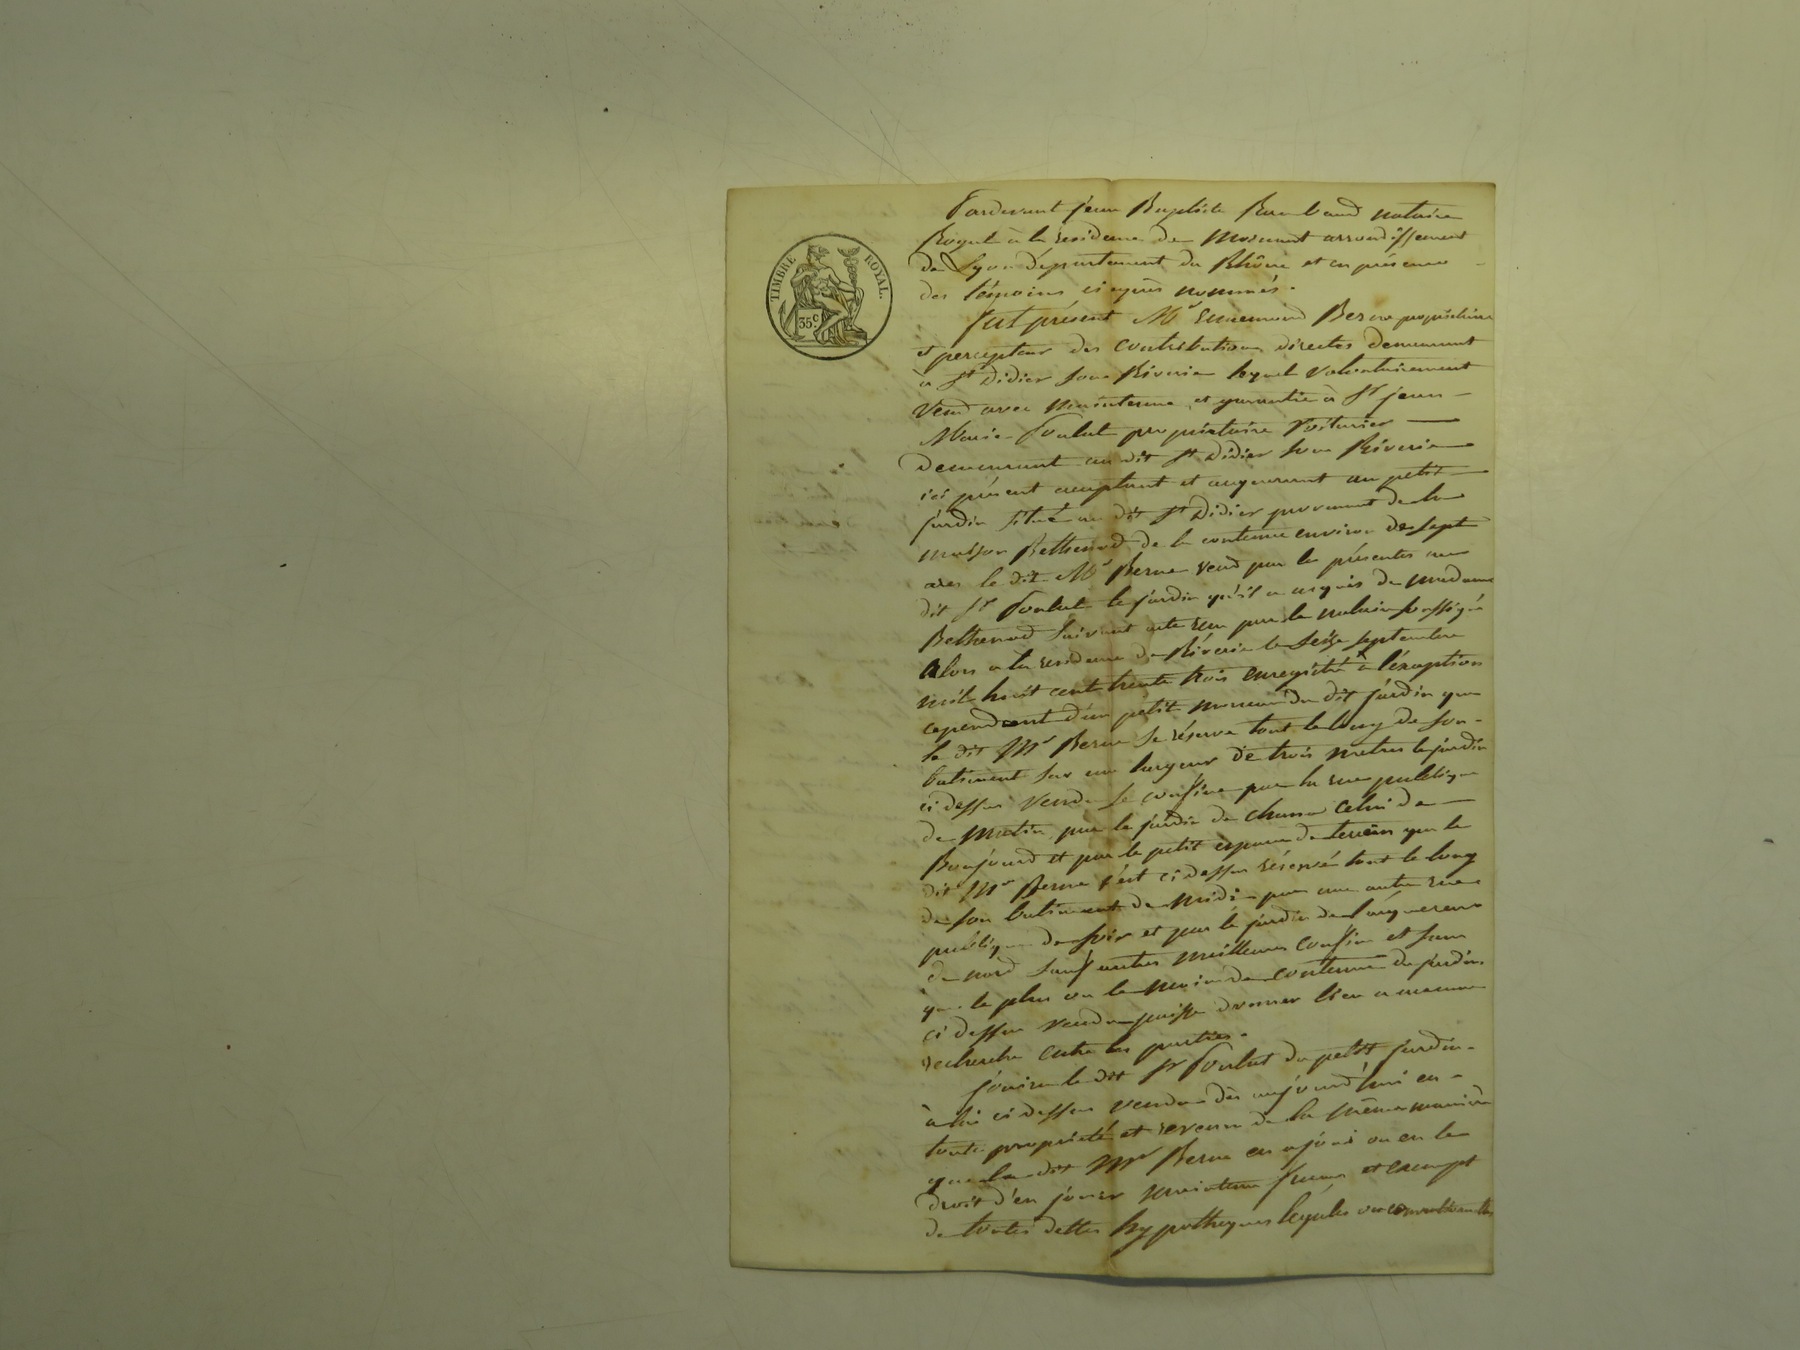 TIMBRE ROYAL.
35 c.
Pardevant jean Baptiste Rambaud notaire
Royal à la residence de Mornant arrondissement
de Lyon département du Rhône et en présence
des témoins ci après nommés.
fut présent Mr Ennemond Berne propriétaire
et percepteur des contributions directes demeurant
à St Didier sous Riverie lequel volontairement
vend avec maintenue et garantie à Sr jean
Marie propriétaire voiturier
demeurant au dit St Didier sous Riverie
ici présent acceptant et acquerant un petit
jardin situé au dit St Didier provenant de la
maison Bethenod de la contenue environ de sept
ares le dit Mr Berne vend par le présentes au
dit Sr le jardin qu'il a acquis de madame
Bethenod suivant acte reçu par le notaire soussigné
alors a la residence de Riverie le seize septembre
mil huit cent trente trois enregistré à l'exception
cependant d'un petit morceau du dit jardin que
le dit Mr Berne se réserve tout le long de son
batiment sur une largeur de trois metres le jardin
ci dessus vendu se confine par la rue publique
de matin, par le jardin de celui de
Bonjourd et par le petit espace de terrein que le
dit Mr Berne s'est ci dessus réservé tout le long
de son batiment de midi par une autre rue
publique de soir et par le jardin de
de nord sauf autres meilleurs confins et sans
que le plus ou le moins de contenue du jardin
ci dessus vendu puisse donner lieu a aucune
recherche entre les parties.
jouira le dit Sr du petit jardin
à lui ci dessus vendu dès aujourd'hui en
toute propriété et revenu de la même manière
que le dit Mr Berne en a joui ou eu le
droit d'en jouir maintenu franc et exempt
de toutes dettes hypotheques legales ou conventionnelles